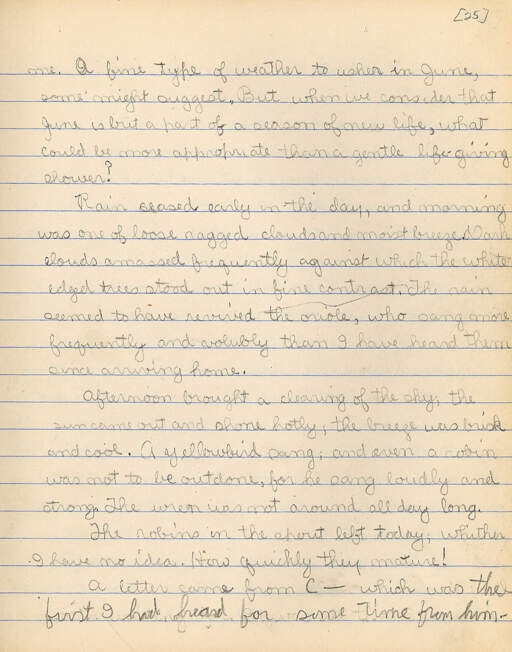 [25]
me. A fine type of weather to usher in June,
some might suggest. But when we consider that
June is but a part of a season of new life, what
could be more appropriate than a gentle life-giving
shower?
Rain ceased early in the day, and morning
was one of loose ragged clouds and moist breeze. Dark
clouds amassed frequently against which the white-
edged trees stood out in fine contrast. The rain
seemed to have revived the oriole, who sang more
frequently and volubly than I have heard them
since arriving home.
Afternoon brought a clearing of the sky; the
sun came out and shone hotly; the breeze was brisk
and cool. A yellowbird sang; and even a robin
was not to be outdone, for he sang loudly and
strong. The wren was not around all day long.
The robins in the spout left today; whither
I have no idea. How quickly they mature!
A letter came from C— which was the
first I had heard for some time from him-